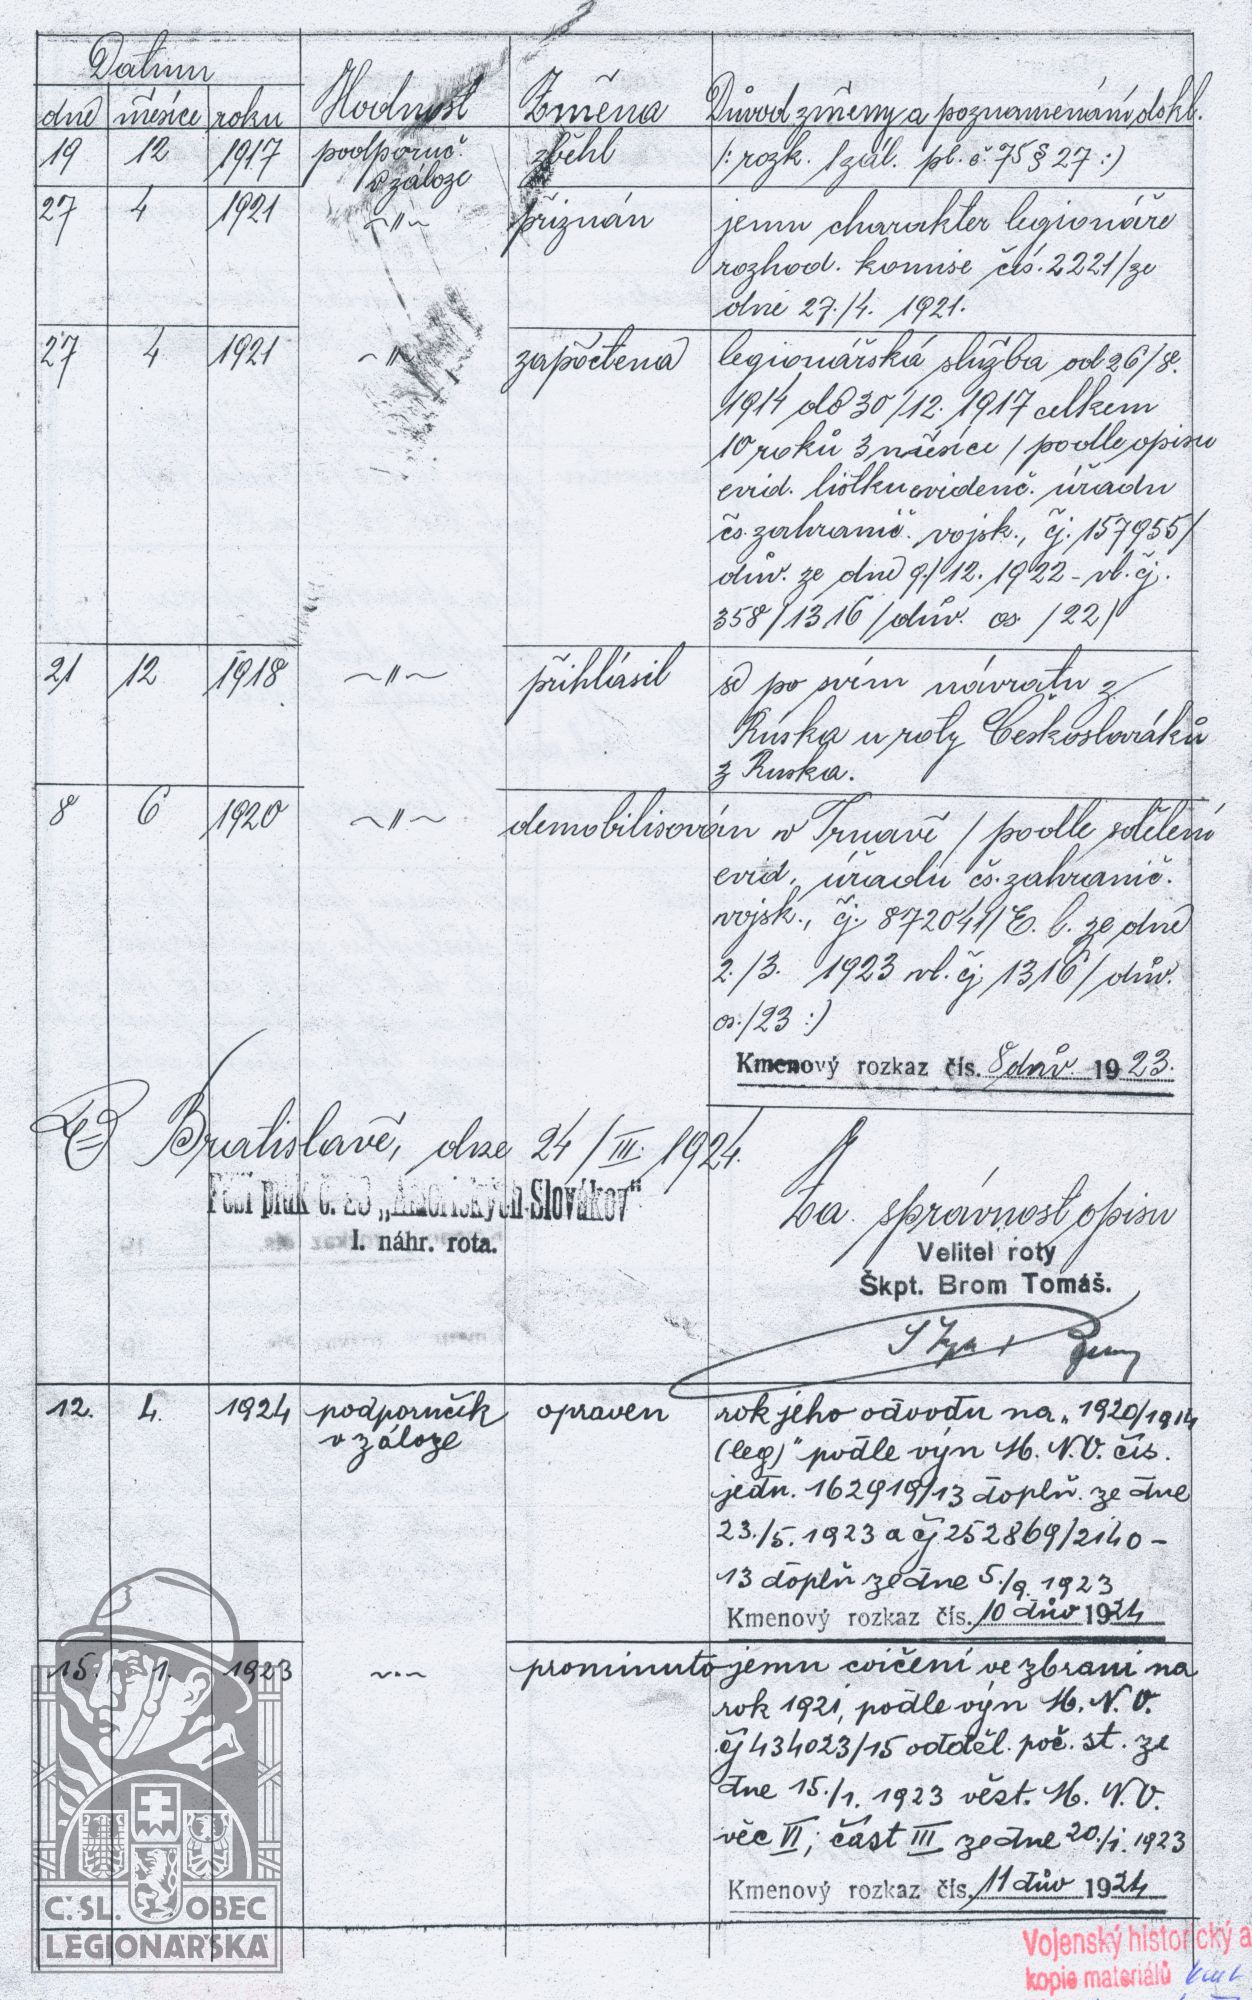 Datum
dne měsíce roku Hodnost Změna Důvod změny a poznamenání dokl.
19 12 1917 podporuč. v záloze zběhl /: rozk. /zál. pl. č. 75 § 27 :/
27 4 1921 ~"~ přiznán jemu charakter legionáře
rozhod. komise čís. 2221/ze
dne 27./4. 1921.
27 4 1921 ~"~ započtena legionářská služba od 26/8.
1914 do 30/12. 1917 celkem
10 roků 3 měsíce / podle opisu
evid. lístku evidenč. úřadu
čs. zahranič. vojsk., čj. 157955/
dův. ze dne 9./12. 1922 - vl. čj.
358/1316/dův. os /22/
21 12 1918 ~"~ přihlásil se po svém návratu z
Ruska u roty Čechoslováků
z Ruska.
8 6 1920 ~"~ demobilisován v Trnavě / podle sdělení
evid. úřadu čs. zahranič.
vojsk., čj. 872041/E. l. ze dne
2./3. 1923 vl. čj. 1316/dův.
os./23 :/
Kmenový rozkaz čís. 8 dův. 1923.
V Bratislavě, dne 24/III. 1924.
Pěší pluk č. 23 „Amerických Slovákov"
I. náhr. rota.
Za správnost opisu
Velitel roty
Škpt. Brom Tomáš.
12. 4. 1924 podporučík v záloze opraven rok jeho odvodu na „1920/1914
(leg)" podle výn M. N. O. čís.
jedn. 162919/13 doplň. ze dne
23./5. 1923 a čj 252869/2140 -
13 doplň ze dne 5./9. 1923
Kmenový rozkaz čís. 10 dův 1924
15. 1. 1923 ~"~ prominuto jemu cvičení ve zbrani na
rok 1921, podle výn M. N. O.
čj 434023/15 odděl. poč. st. ze
dne 15./1. 1923 věst. M. N. O.
věc VI, část III ze dne 20./1. 1923
Kmenový rozkaz čís. 11 dův 1924
Č. SL. OBEC
LEGIONÁŘSKÁ
Vojenský historický a
kopie materiálů